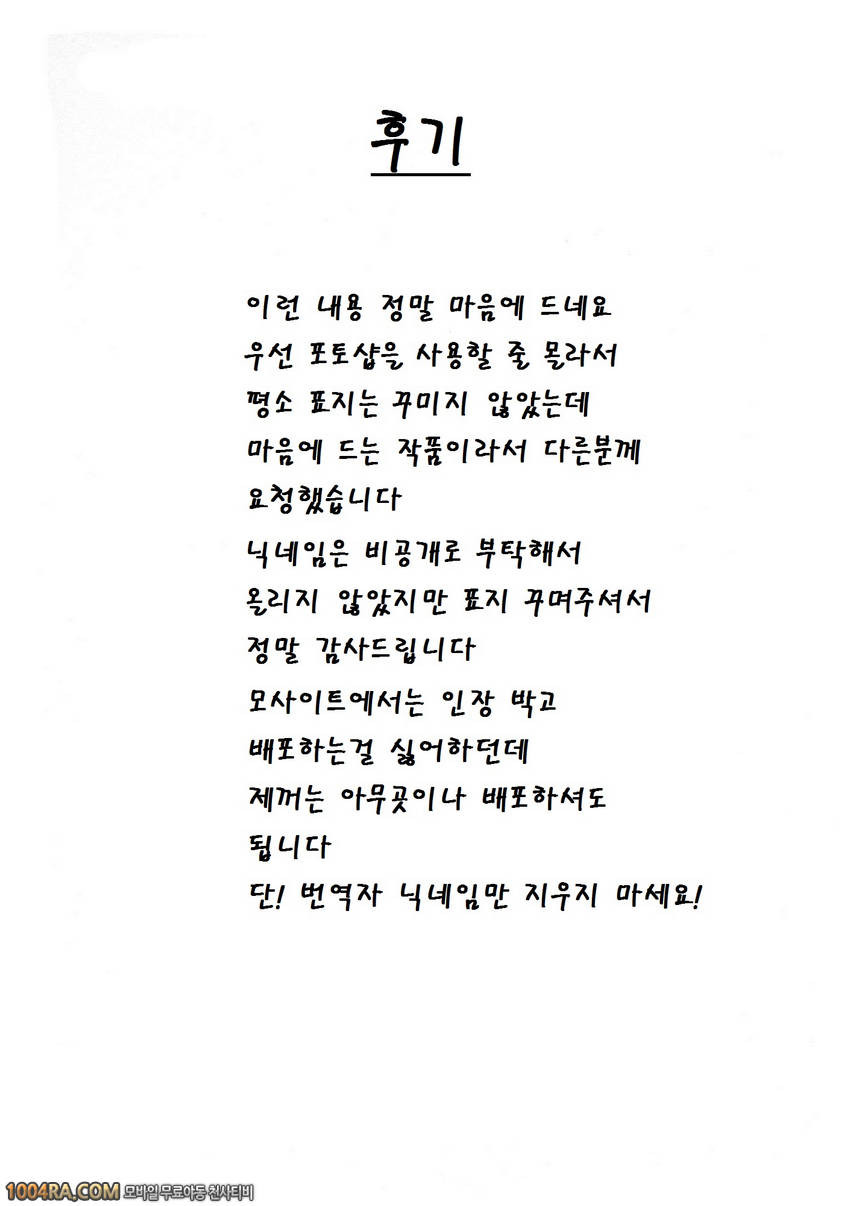 후기
이런 내용 정말 마음에 드네요
우선 포토샵을 사용할 줄 몰라서
평소 표지는 꾸미지 않았는데
마음에 드는 작품이라서 다른분께
요청했습니다
닉네임은 비공개로 부탁해서
올리지 않았지만 표지 꾸며주셔서
정말 감사드립니다
모사이트에서는 인장 박고
배포하는걸 싫어하던데
제꺼는 아무곳이나 배포하셔도
됩니다
단! 번역자 닉네임만 지우지 마세요!
1004RA.COM 모바일 무료야동 천사티비